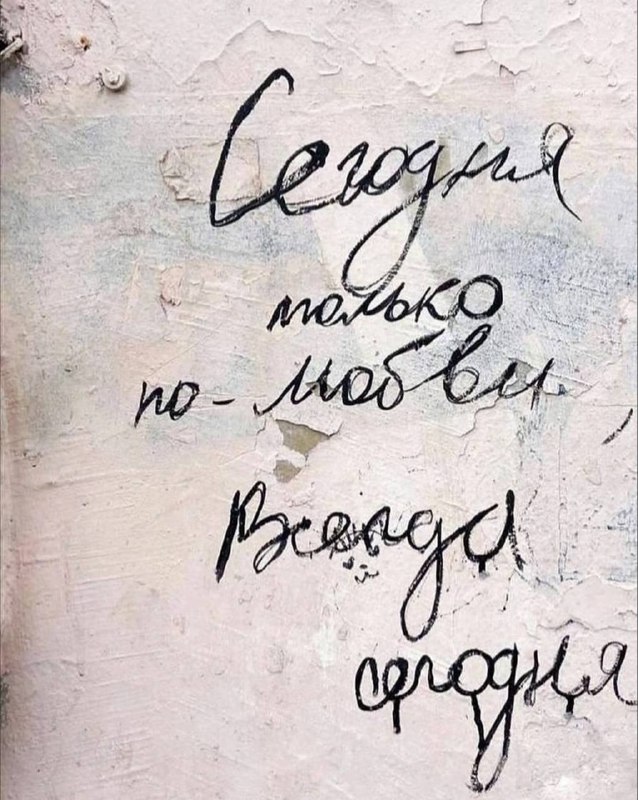 Сегодня
только
по-любви,
Всегда
сегодня